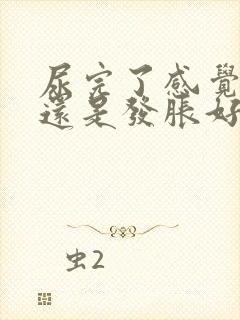 尿完了感覺
還是發脹好
虫2